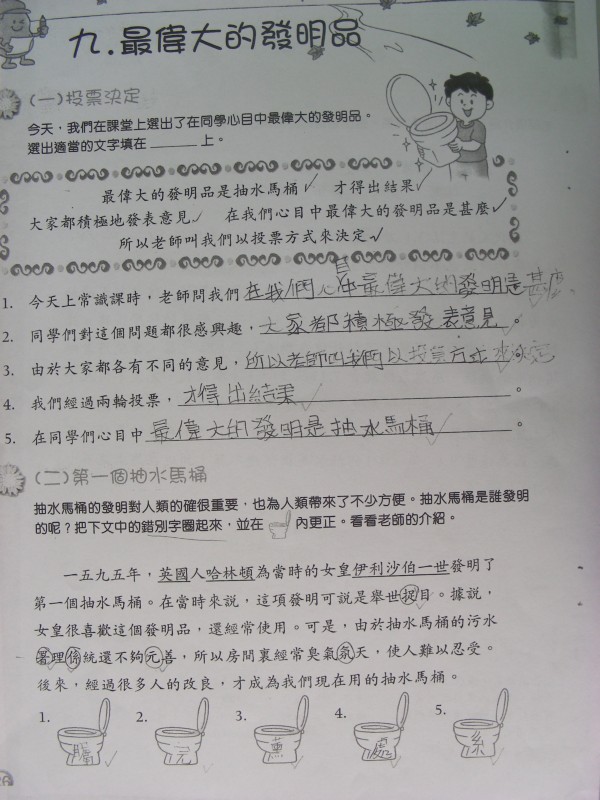 九.最偉大的發明品
(一)投票決定
今天，我們在課堂上選出了在同學心目中最偉大的發明品。
選出適當的文字填在______上。
最偉大的發明品是抽水馬桶✓ 才得出結果✓
大家都積極地發表意見✓ 在我們心目中最偉大的發明品是甚麼✓
所以老師叫我們以投票方式來決定✓
1. 今天上常識課時，老師問我們在我們心目中最偉大的發明是甚麼
2. 同學們對這個問題都很感興趣，大家都積極發表意見。
3. 由於大家都各有不同的意見，所以老師叫我們以投票方式來決定
4. 我們經過兩輪投票，才得出結果。
5. 在同學們心目中最偉大的發明是抽水馬桶。
(二)第一個抽水馬桶
抽水馬桶的發明對人類的確很重要，也為人類帶來了不少方便。抽水馬桶是誰發明
的呢？把下文中的錯別字圈起來，並在 內更正。看看老師的介紹。
一五九五年，英國人哈林頓為當時的女皇伊利沙伯一世發明了
第一個抽水馬桶。在當時來說，這項發明可說是舉世捉目。據說，
女皇很喜歡這個發明品，還經常使用。可是，由於抽水馬桶的污水
署理係統還不夠元善，所以房間裏經常臭氣氛天，使人難以忍受。
後來，經過很多人的改良，才成為我們現在用的抽水馬桶。
1. 2. 3. 4. 5.
完 薰 處 系